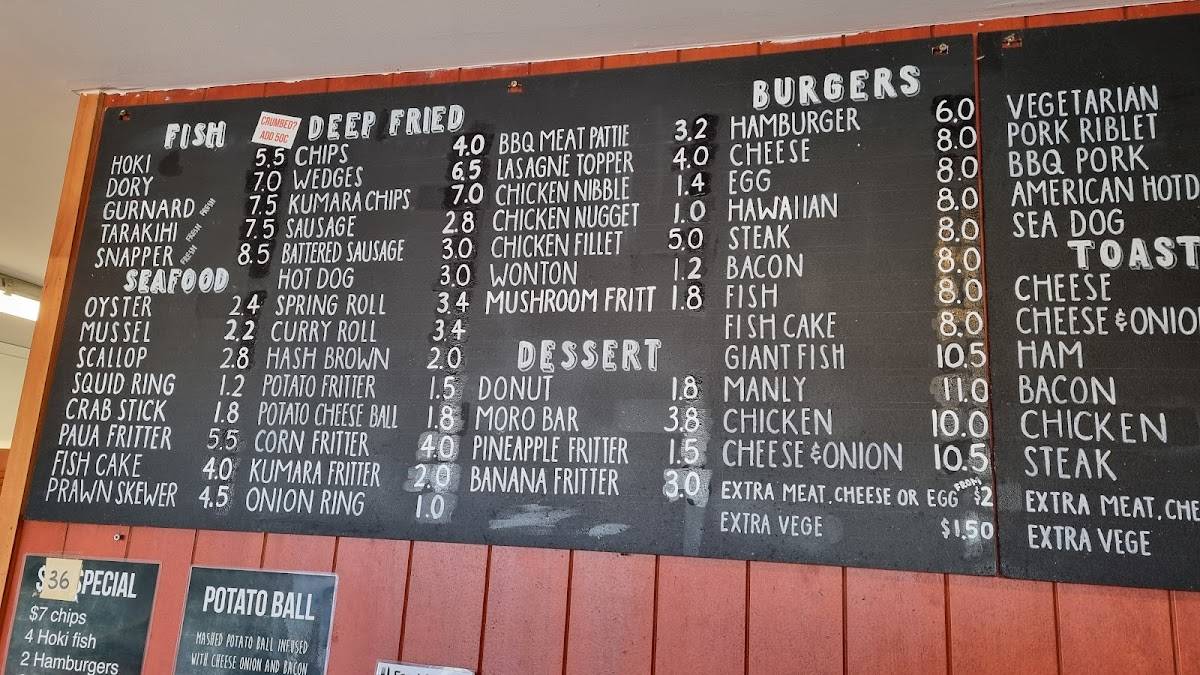 FISH
HOKI 5.5
DORY 7.0
GURNARD FRESH 7.5
TARAKIHI FRESH 7.5
SNAPPER FRESH 8.5
SEAFOOD
OYSTER 2.4
MUSSEL 2.2
SCALLOP 2.8
SQUID RING 1.2
CRAB STICK 1.8
PAUA FRITTER 5.5
FISH CAKE 4.0
PRAWN SKEWER 4.5
CRUMBED?
ADD 50C
DEEP FRIED
CHIPS 4.0
WEDGES 6.5
KUMARA CHIPS 7.0
SAUSAGE 2.8
BATTERED SAUSAGE 3.0
HOT DOG 3.0
SPRING ROLL 3.4
CURRY ROLL 3.4
HASH BROWN 2.0
POTATO FRITTER 1.5
POTATO CHEESE BALL 1.8
CORN FRITTER 4.0
KUMARA FRITTER 2.0
ONION RING 1.0
BBQ MEAT PATTIE 3.2
LASAGNE TOPPER 4.0
CHICKEN NIBBLE 1.4
CHICKEN NUGGET 1.0
CHICKEN FILLET 5.0
WONTON 1.2
MUSHROOM FRITT 1.8
DESSERT
DONUT 1.8
MORO BAR 3.8
PINEAPPLE FRITTER 1.5
BANANA FRITTER 3.0
BURGERS
HAMBURGER 6.0
CHEESE 8.0
EGG 8.0
HAWAIIAN 8.0
STEAK 8.0
BACON 8.0
FISH 8.0
FISH CAKE 8.0
GIANT FISH 10.5
MANLY 11.0
CHICKEN 10.0
CHEESE & ONION 10.5
EXTRA MEAT, CHEESE OR EGG FROM $2
EXTRA VEGE $1.50
VEGETARIAN
PORK RIBLET
BBQ PORK
AMERICAN HOTD
SEA DOG
TOAST
CHEESE
CHEESE & ONIO
HAM
BACON
CHICKEN
STEAK
EXTRA MEAT, CHE
EXTRA VEGE
36 SPECIAL
$7 chips
4 Hoki fish
2 Hamburgers
POTATO BALL
MASHED POTATO BALL INFUSED
WITH CHEESE ONION AND BACON